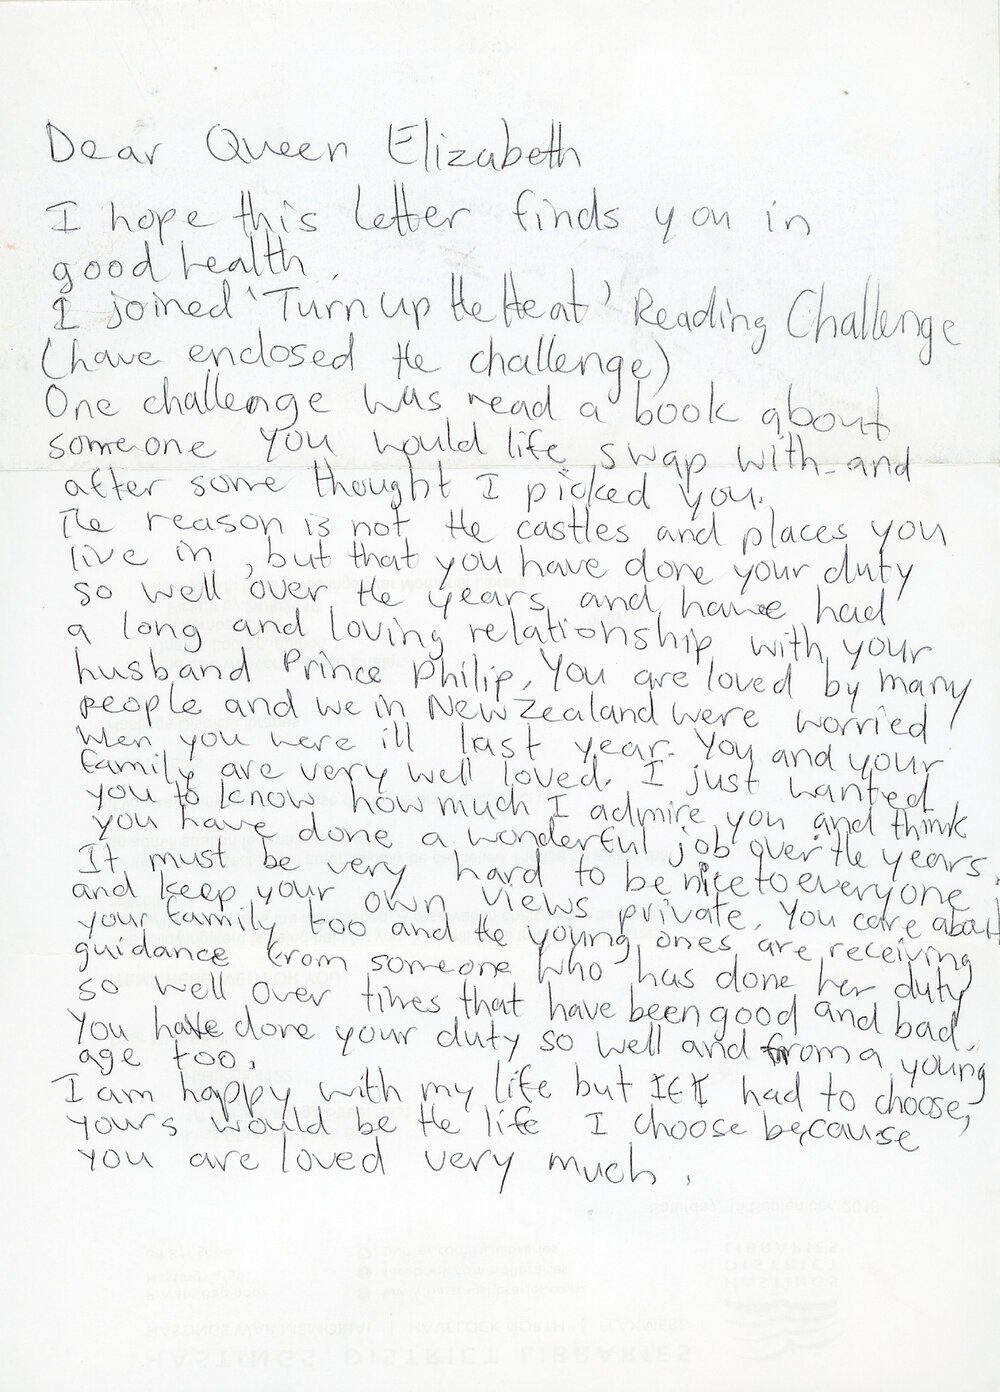 Dear Queen Elizabeth
I hope this letter finds you in
good health.
I joined 'Turn up the Heat' Reading Challenge
(have enclosed the challenge)
One challenge was read a book about
someone you would life swap with and
after some thought I picked you.
The reason is not the castles and places you
live in, but that you have done your duty
so well over the years and have had
a long and loving relationship with your
husband Prince Philip. You are loved by many
people and we in New Zealand were worried
when you were ill last year. You and your
family are very well loved. I just wanted
you to know how much I admire you and think
you have done a wonderful job over the years.
It must be very hard to be nice to everyone
and keep your own views private. You care about
your family too and the young ones are receiving
guidance from someone who has done her duty
so well over times that have been good and bad.
You have done your duty so well and from a young
age too.
I am happy with my life but if I had to choose,
yours would be the life I choose because
you are loved very much.
Saturday, 15 September, 2018
LIBRARIES
DISTRICT
HASTINGS
HASTINGS WAR MEMORIAL | HAVELOCK NORTH | FLAXMERE
HASTINGS DISTRICT LIBRARIES